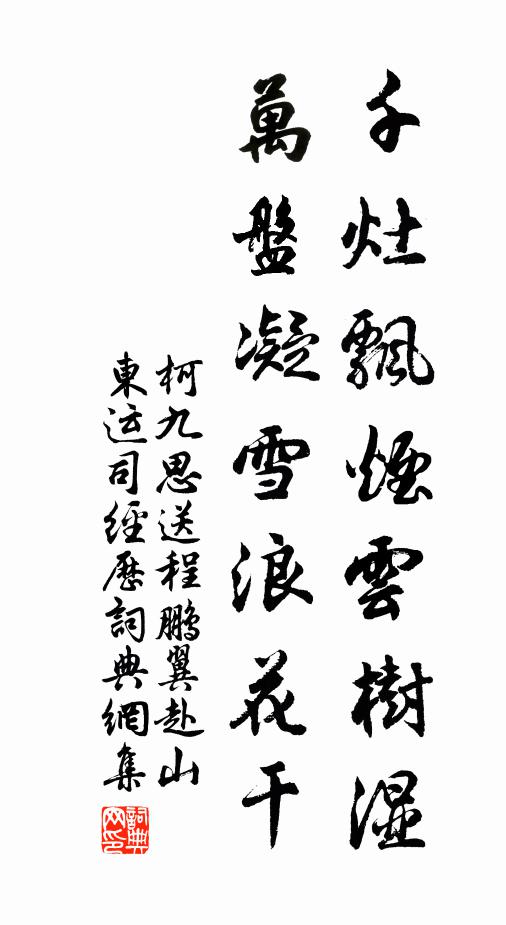 千灶飄煙雲樹湿
萬盤凝雪浪花干
柯九思送程鵬翼赴山
東运司經歷詞典網集
詞典
网印